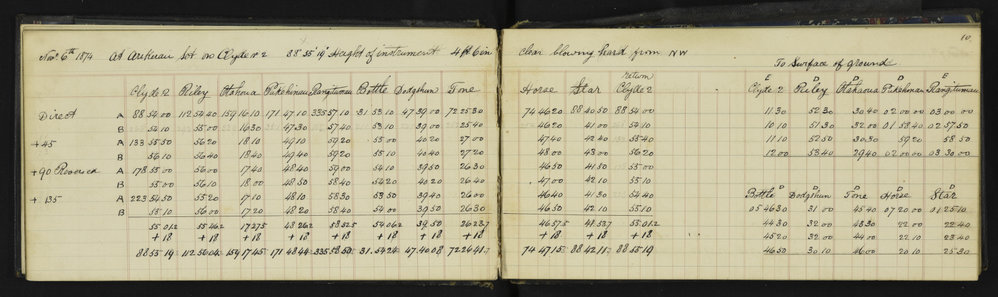 10
Nov. 6th 1874 At Arikirau Lot on Clyde No 2 88° 55' 19" Height of instrument 4 ft 6 in Clear blowing hard from NW
To Surface of ground
return
Clyde 2 Riley Otahoua Pukehinau Rangitumau Bottle Dodgshun Tone Horse Star Clyde 2
E D D D E
Clyde 2 Riley Otahaoua Pukehinau Rangitumau
Direct A 88 54.00 112 54.40 159 16.10 171 47.10 335 57.10 31 53.10 47 39.00 72 25.30 74 46.20 88 40.50 88 54.00 11.30 52.30 30.40 02 00.00 03 00.00
B 54.10 55.00 16.30 47.30 57.40 53.10 39.00 25.40 46.20 41.00 54.10 10.10 51.30 32.00 01 58.40 02 57.50
+45 A 133 55.50 56.20 18.10 49.10 59.20 55.00 40.20 27.00 47.40 42.20 55.40 11.10 52.50 30.30 59.20 58.50
B 56.10 56.40 18.40 49.40 59.20 55.10 40.40 27.20 48.00 43.00 56.20 12.00 53.40 29.40 02 00.00 03 30.00
+90 Reversed A 178 55.00 56.00 17.40 48.40 59.00 54.10 39.50 26.30 46.50 41.80 55.00
B 55.00 56.10 18.00 48.50 58.40 54.20 40.20 26.40 47.00 42.10 55.10
D D D D D
Bottle Dodgshun Tone Horse Star
+135 A 223 54.50 55.20 17.10 48.10 58.30 53.50 39.40 26.00 46.40 41.30 54.40
B 55.10 56.00 17.20 48.20 58.40 54.00 39.50 26.30 46.50 42.10 55.10 05 46.30 31.00 45.40 07 20.00 01 25.10
55.01.2 55.46.2 17.27.5 48.26.2 58.32.5 54.06.2 39.50 26.23.7 46.57.5 41.53.7 55.01.2 44.30 32.00 43.30 22.00 22.40
+18 +18 +18 +18 +18 +18 +18 +18 +18 +18 +18 45.20 32.00 44.00 22.10 23.40
88 55 19 112 56 04 159 17 45 171 48 44 335 58 50 31 54 24 47 40 08 72 26 41 74 47 15 88 42 11 88 55 19 46.50 30.10 46.00 20.10 25.30